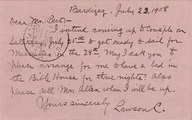 Bardizag, July 23, 1908
Dear Mr. Peet:—
I intend coming up to Consple on
Saturday July 25th to get ready to sail for
Marseilles by the 28th. May I ask you to
please arrange for me to have a bed in
the Bible House for three nights? Also
please tell Mr. Allen when I will be up.
Yours sincerely
Lawson C.